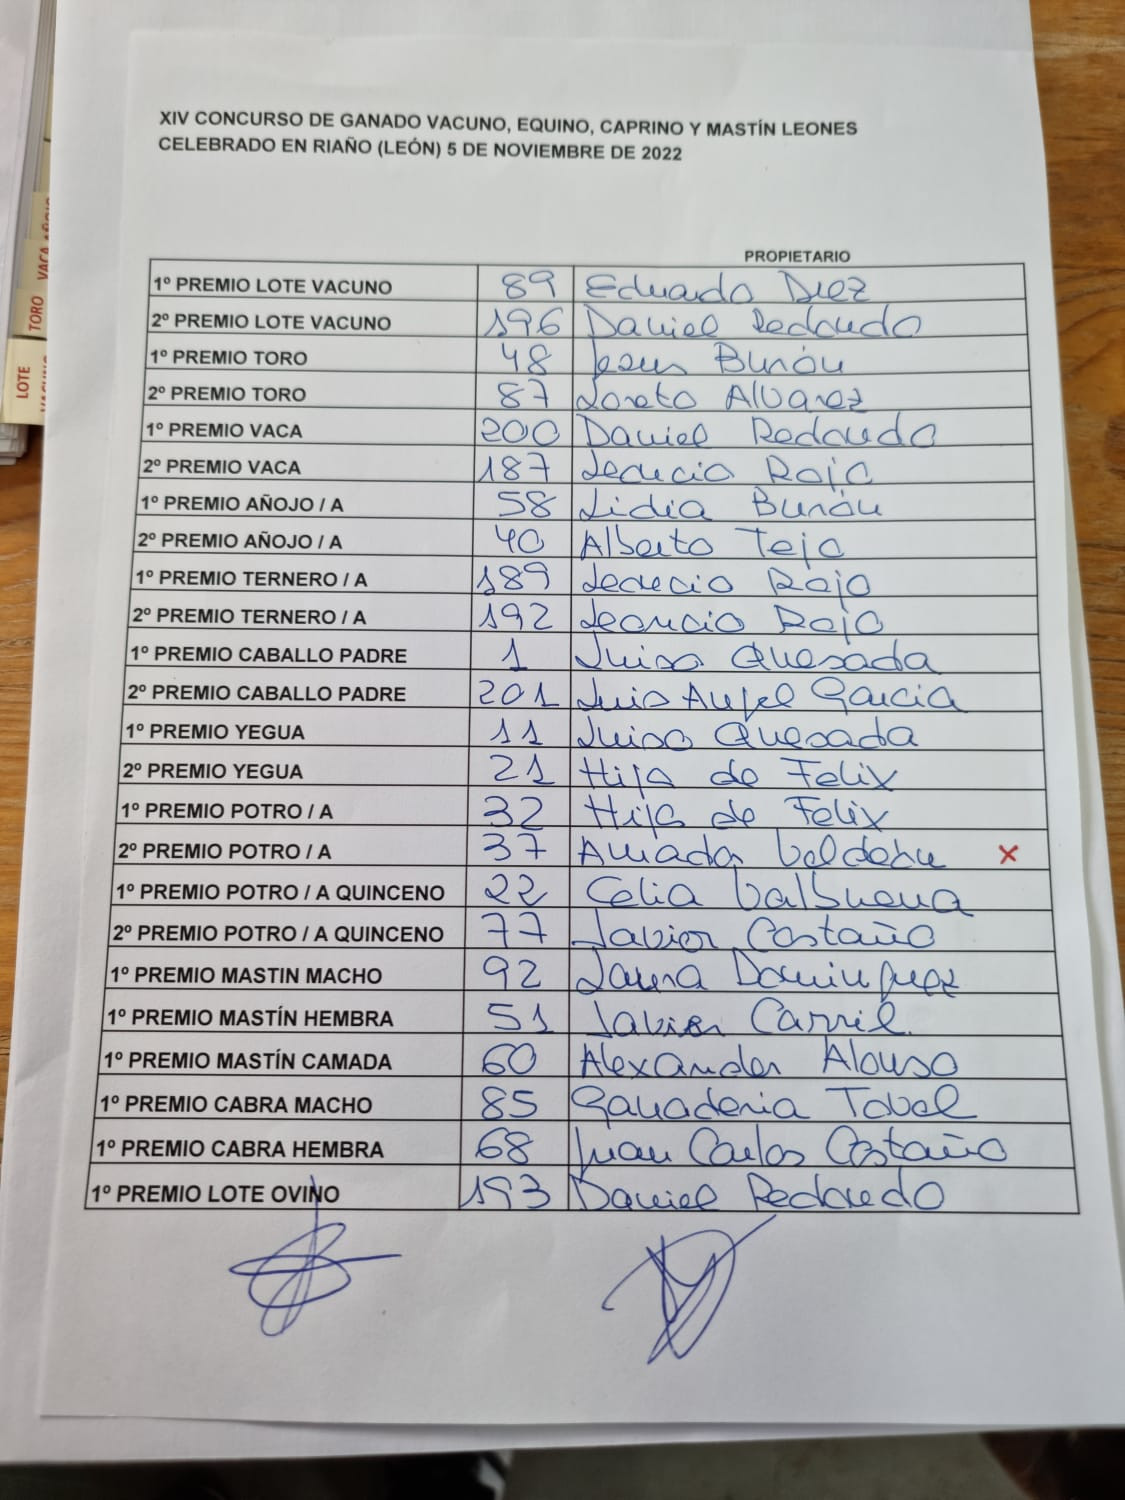 XIV CONCURSO DE GANADO VACUNO, EQUINO, CAPRINO Y MASTÍN LEONES
CELEBRADO EN RIAÑO (LEÓN) 5 DE NOVIEMBRE DE 2022
PROPIETARIO
1º PREMIO LOTE VACUNO 89 Eduardo Diez
2º PREMIO LOTE VACUNO 196 Daniel Redondo
1º PREMIO TORO 48 Jesus Burón
2º PREMIO TORO 87 Loreto Alvarez
1º PREMIO VACA 200 Daniel Redondo
2º PREMIO VACA 187 Leoncio Rojo
1º PREMIO AÑOJO / A 58 Lidia Burón
2º PREMIO AÑOJO / A 40 Alberto Tejo
1º PREMIO TERNERO / A 189 Leoncio Rojo
2º PREMIO TERNERO / A 192 Leoncio Rojo
1º PREMIO CABALLO PADRE 1 Luisa Quesada
2º PREMIO CABALLO PADRE 201 Luis Angel Garcia
1º PREMIO YEGUA 11 Luisa Quesada
2º PREMIO YEGUA 21 Hija de Felix
1º PREMIO POTRO / A 32 Hija de Felix
2º PREMIO POTRO / A 37 Amador X
1º PREMIO POTRO / A QUINCENO 22 Celia Valbuena
2º PREMIO POTRO / A QUINCENO 77 Javier Costaño
1º PREMIO MASTIN MACHO 92 Laura Dominguez
1º PREMIO MASTÍN HEMBRA 51 Javier Carril
1º PREMIO MASTÍN CAMADA 60 Alexander Alonso
1º PREMIO CABRA MACHO 85 Ganaderia Tabel
1º PREMIO CABRA HEMBRA 68 Juan Carlos Costaño
1º PREMIO LOTE OVINO 193 Daniel Redondo
VACA
TORO
LOTE